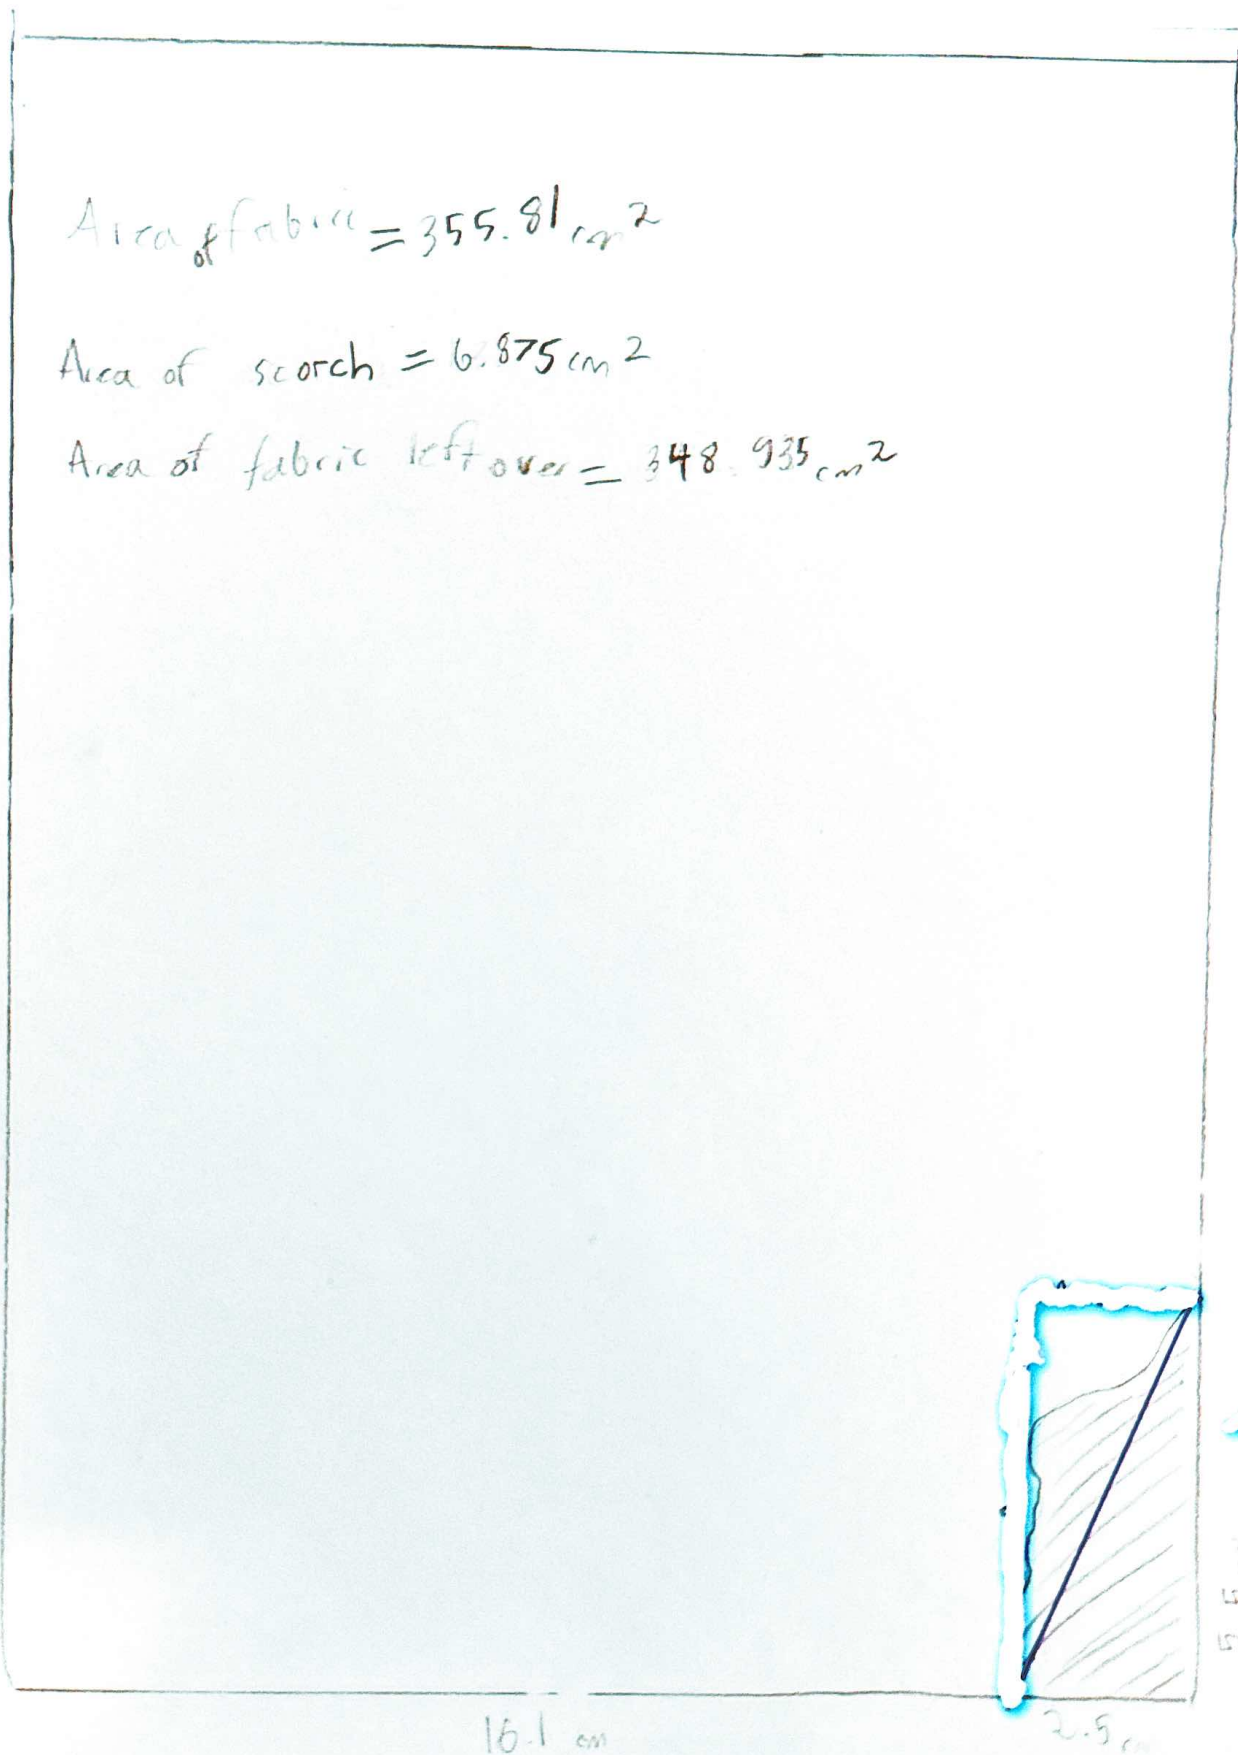 Area of fabric = 355.81 cm²
Area of scorch = 6.875 cm²
Area of fabric left over = 348.935 cm²
5.5
16.1 cm
2.5 cm